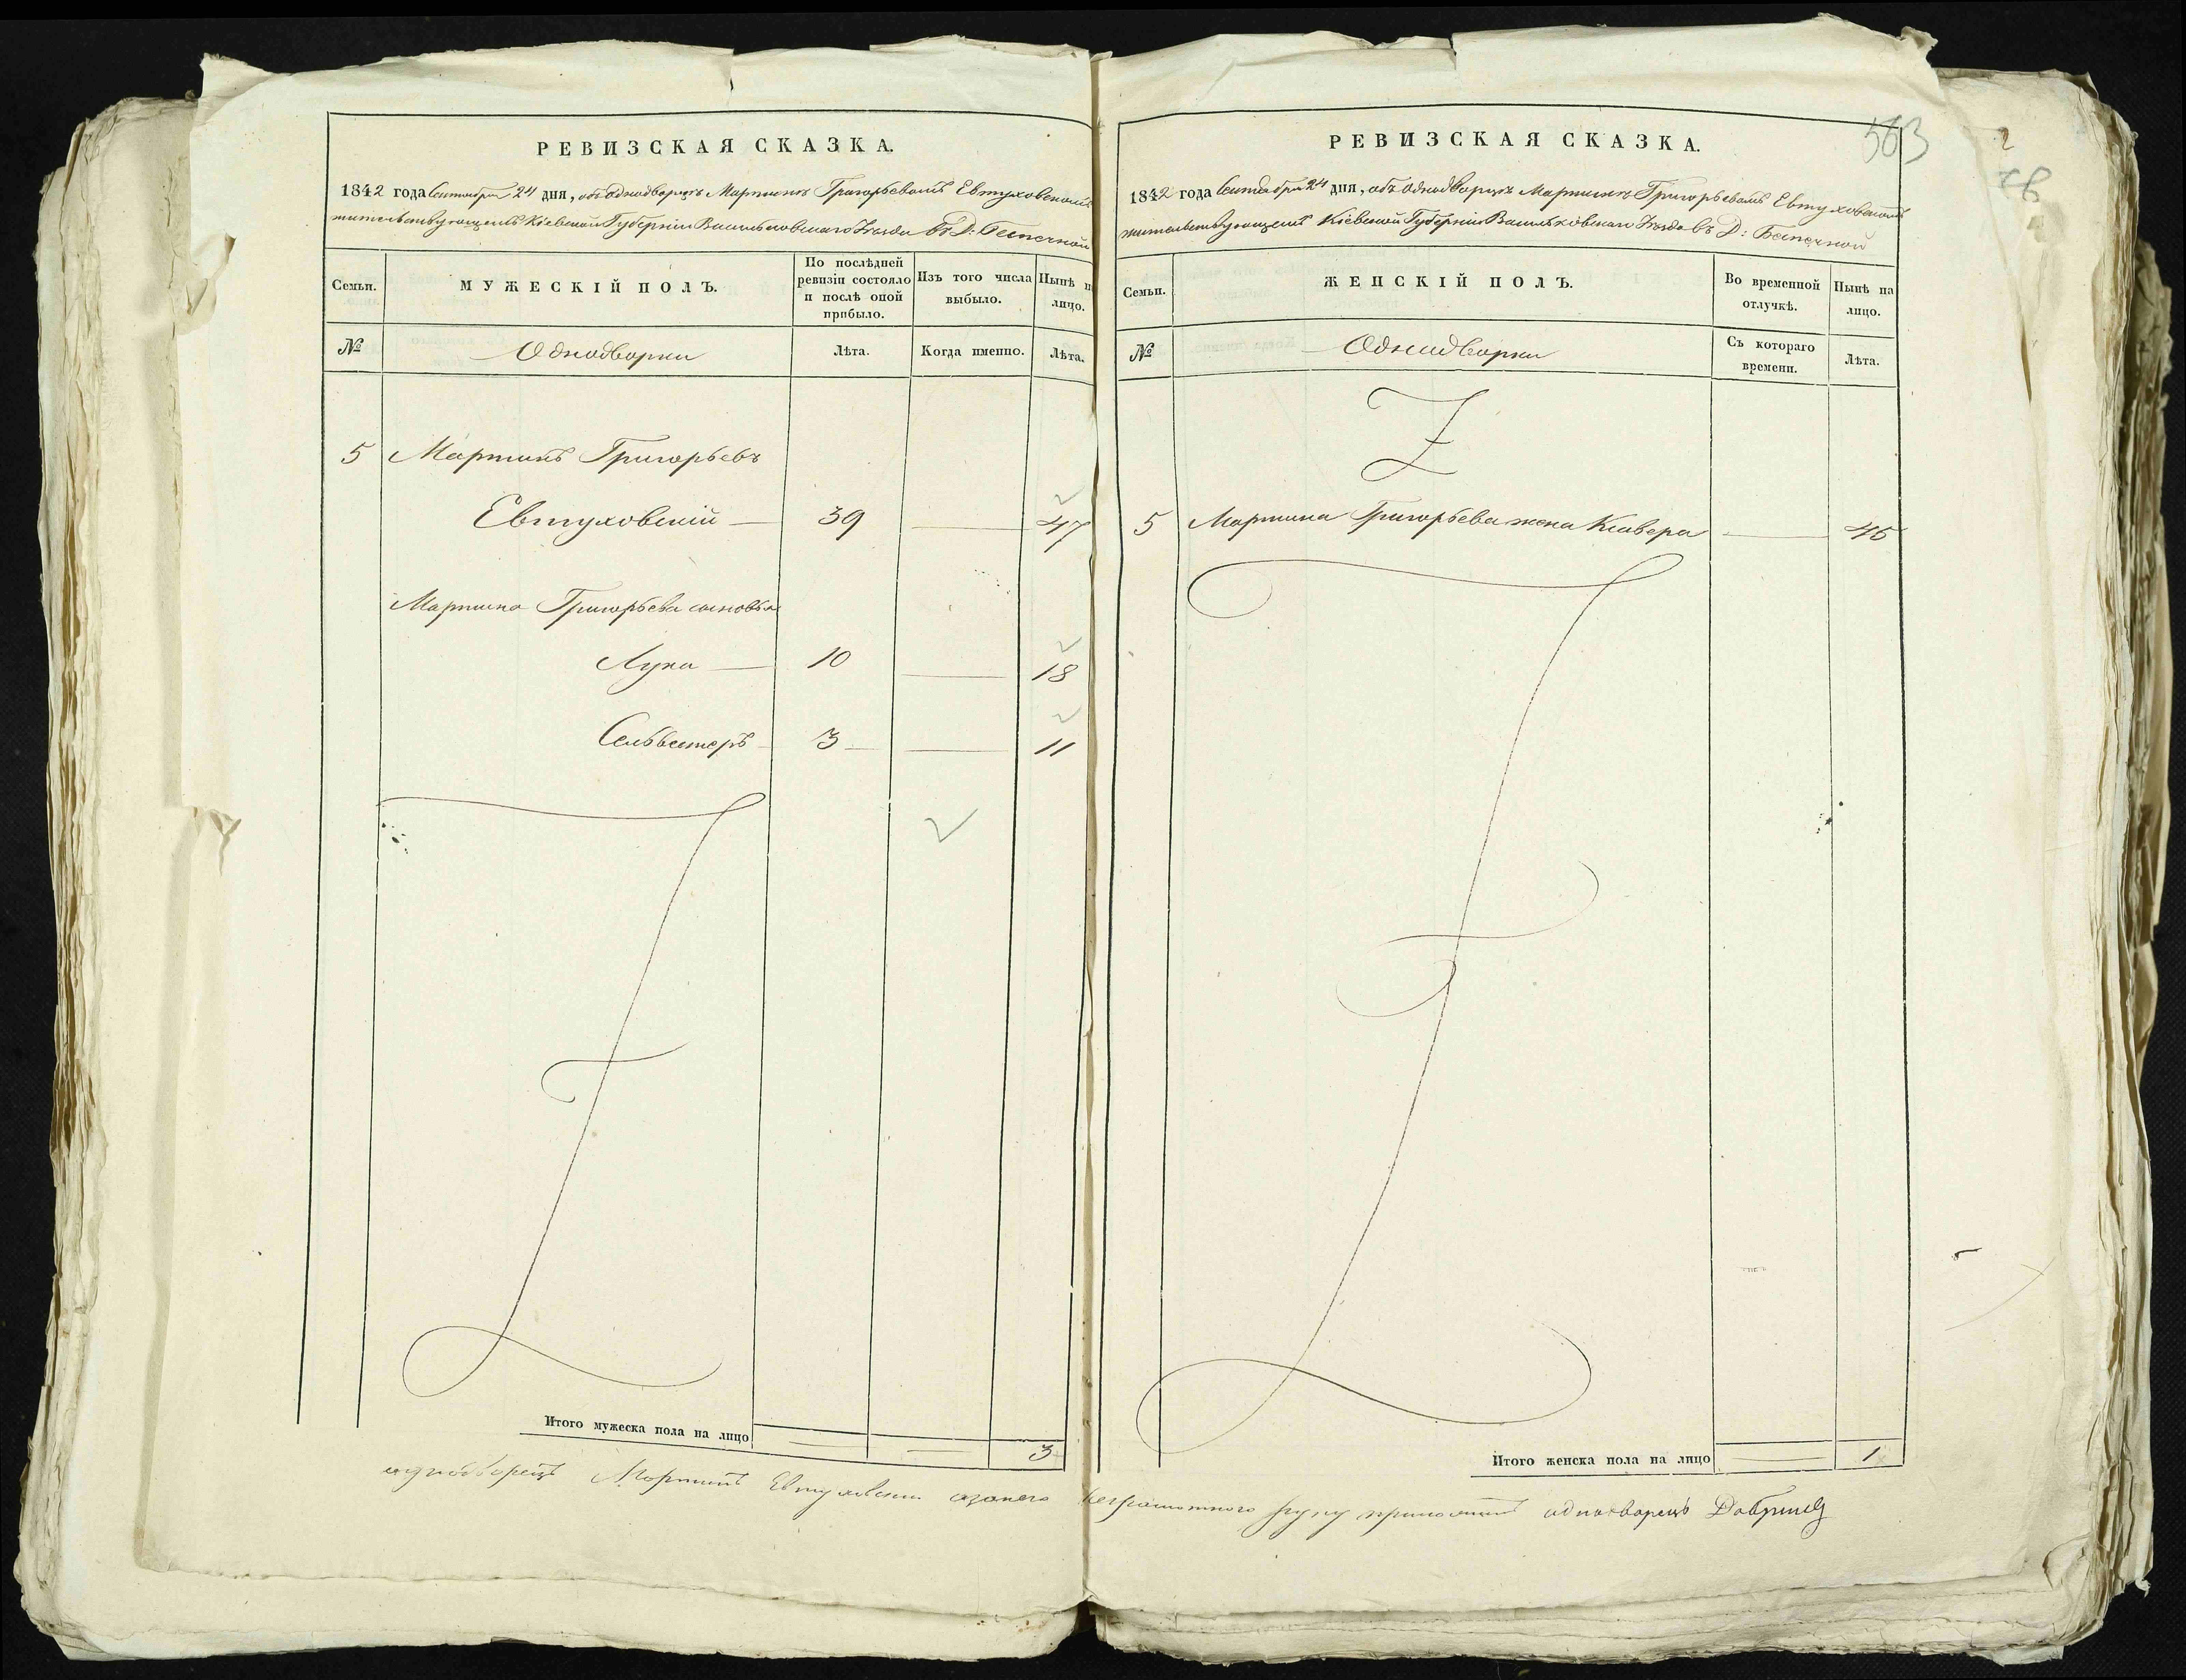 РЕВИЗСКАЯ СКАЗКА.
1842 года Сентября 24 дня, объ однодворцѣ Мартинѣ Григорьевомъ Евтуховскомъ
жительствующемъ Кіевской Губерніи Васильковскаго Уѣзда въ Д: Безпечной
Семьи.
МУЖЕСКІЙ ПОЛЪ.
По послѣдней ревизіи состояло и послѣ оной прибыло.
Изъ того числа выбыло.
Нынѣ на лицо.
№
Однодворки
Лѣта.
Когда именно.
Лѣта.
5 Мартинъ Григорьевъ
Евтуховскій — 39 — 47
Мартина Григорьева сыновья
Лука — 10 — 18
Сельвестеръ — 3 — 11
Итого мужеска пола на лицо 3
583
РЕВИЗСКАЯ СКАЗКА.
1842 года Сентября 24 дня, объ однодворцѣ Мартинѣ Григорьевомъ Евтуховскомъ
жительствующемъ Кіевской Губерніи Васильковскаго Уѣзда въ Д: Безпечной
Семьи.
ЖЕНСКІЙ ПОЛЪ.
Во временной отлучкѣ.
Нынѣ на лицо.
№
Однодворки
Съ котораго времени.
Лѣта.
5 Мартина Григорьева жена Ксавера — 45
Итого женска пола на лицо 1
однодворецъ Мартинъ Евтуховскій азанего неграмотного руку приложилъ однодворецъ